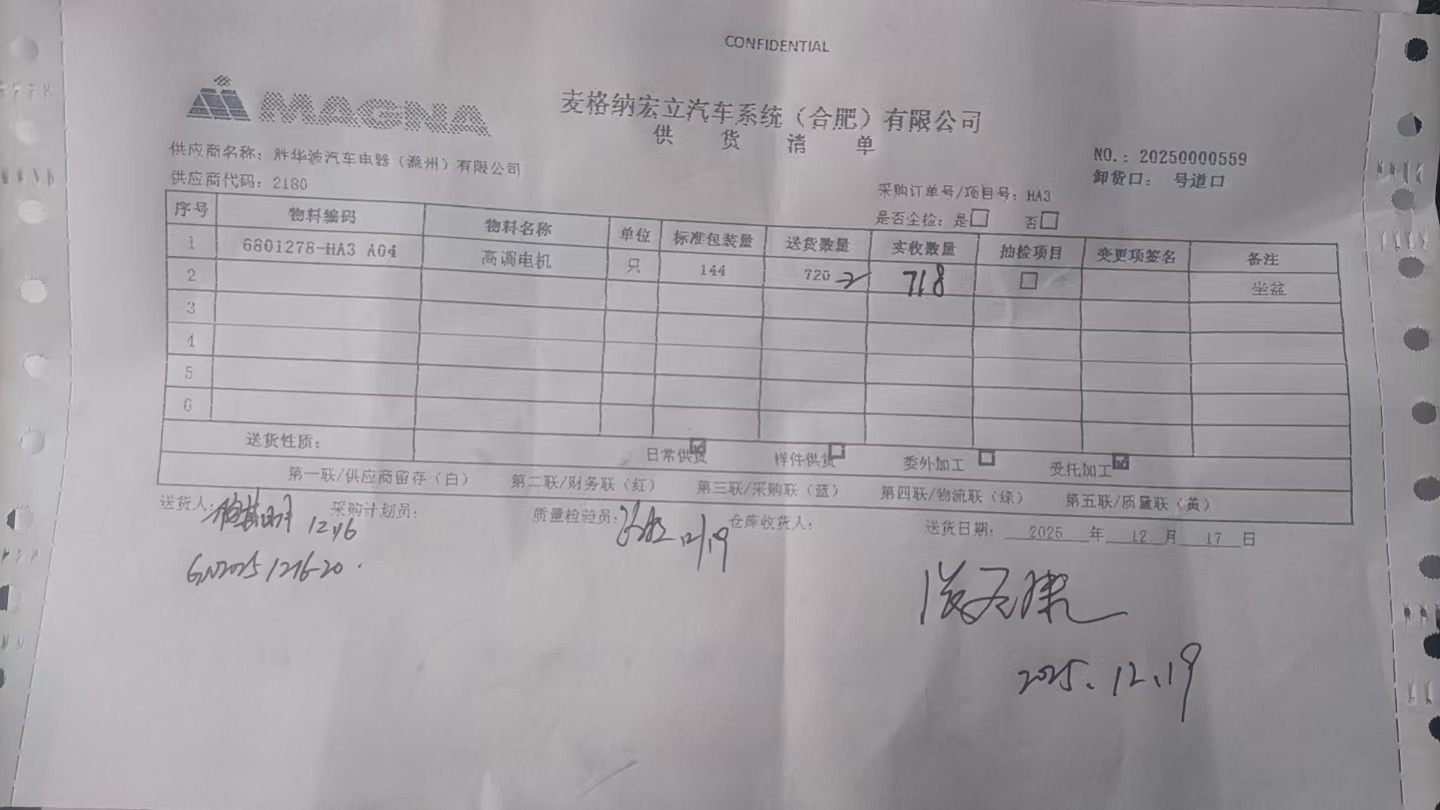 CONFIDENTIAL
MAGNA
麦格纳宏立汽车系统（合肥）有限公司
供 货 清 单
供应商名称：胜华波汽车电器（滁州）有限公司
NO.：20250000559
供应商代码：2180
采购订单号/项目号：HA3
卸货口： 号道口
是否全检：是□ 否□
序号 物料编码 物料名称 单位 标准包装量 送货数量 实收数量 抽检项目 变更项签名 备注
1 6801278-HA3 A04 高调电机 只 144 720 -2 718 □ 坐盆
2
3
4
5
6
送货性质： 日常供货☑ 样件供货□ 委外加工□ 受托加工☑
第一联/供应商留存（白） 第二联/财务联（红） 第三联/采购联（蓝） 第四联/物流联（绿） 第五联/质量联（黄）
送货人： 12.16 采购计划员： 质量检验员： 12/19 仓库收货人： 送货日期： 2025 年 12 月 17 日
GN20251216-20.
2025.12.19